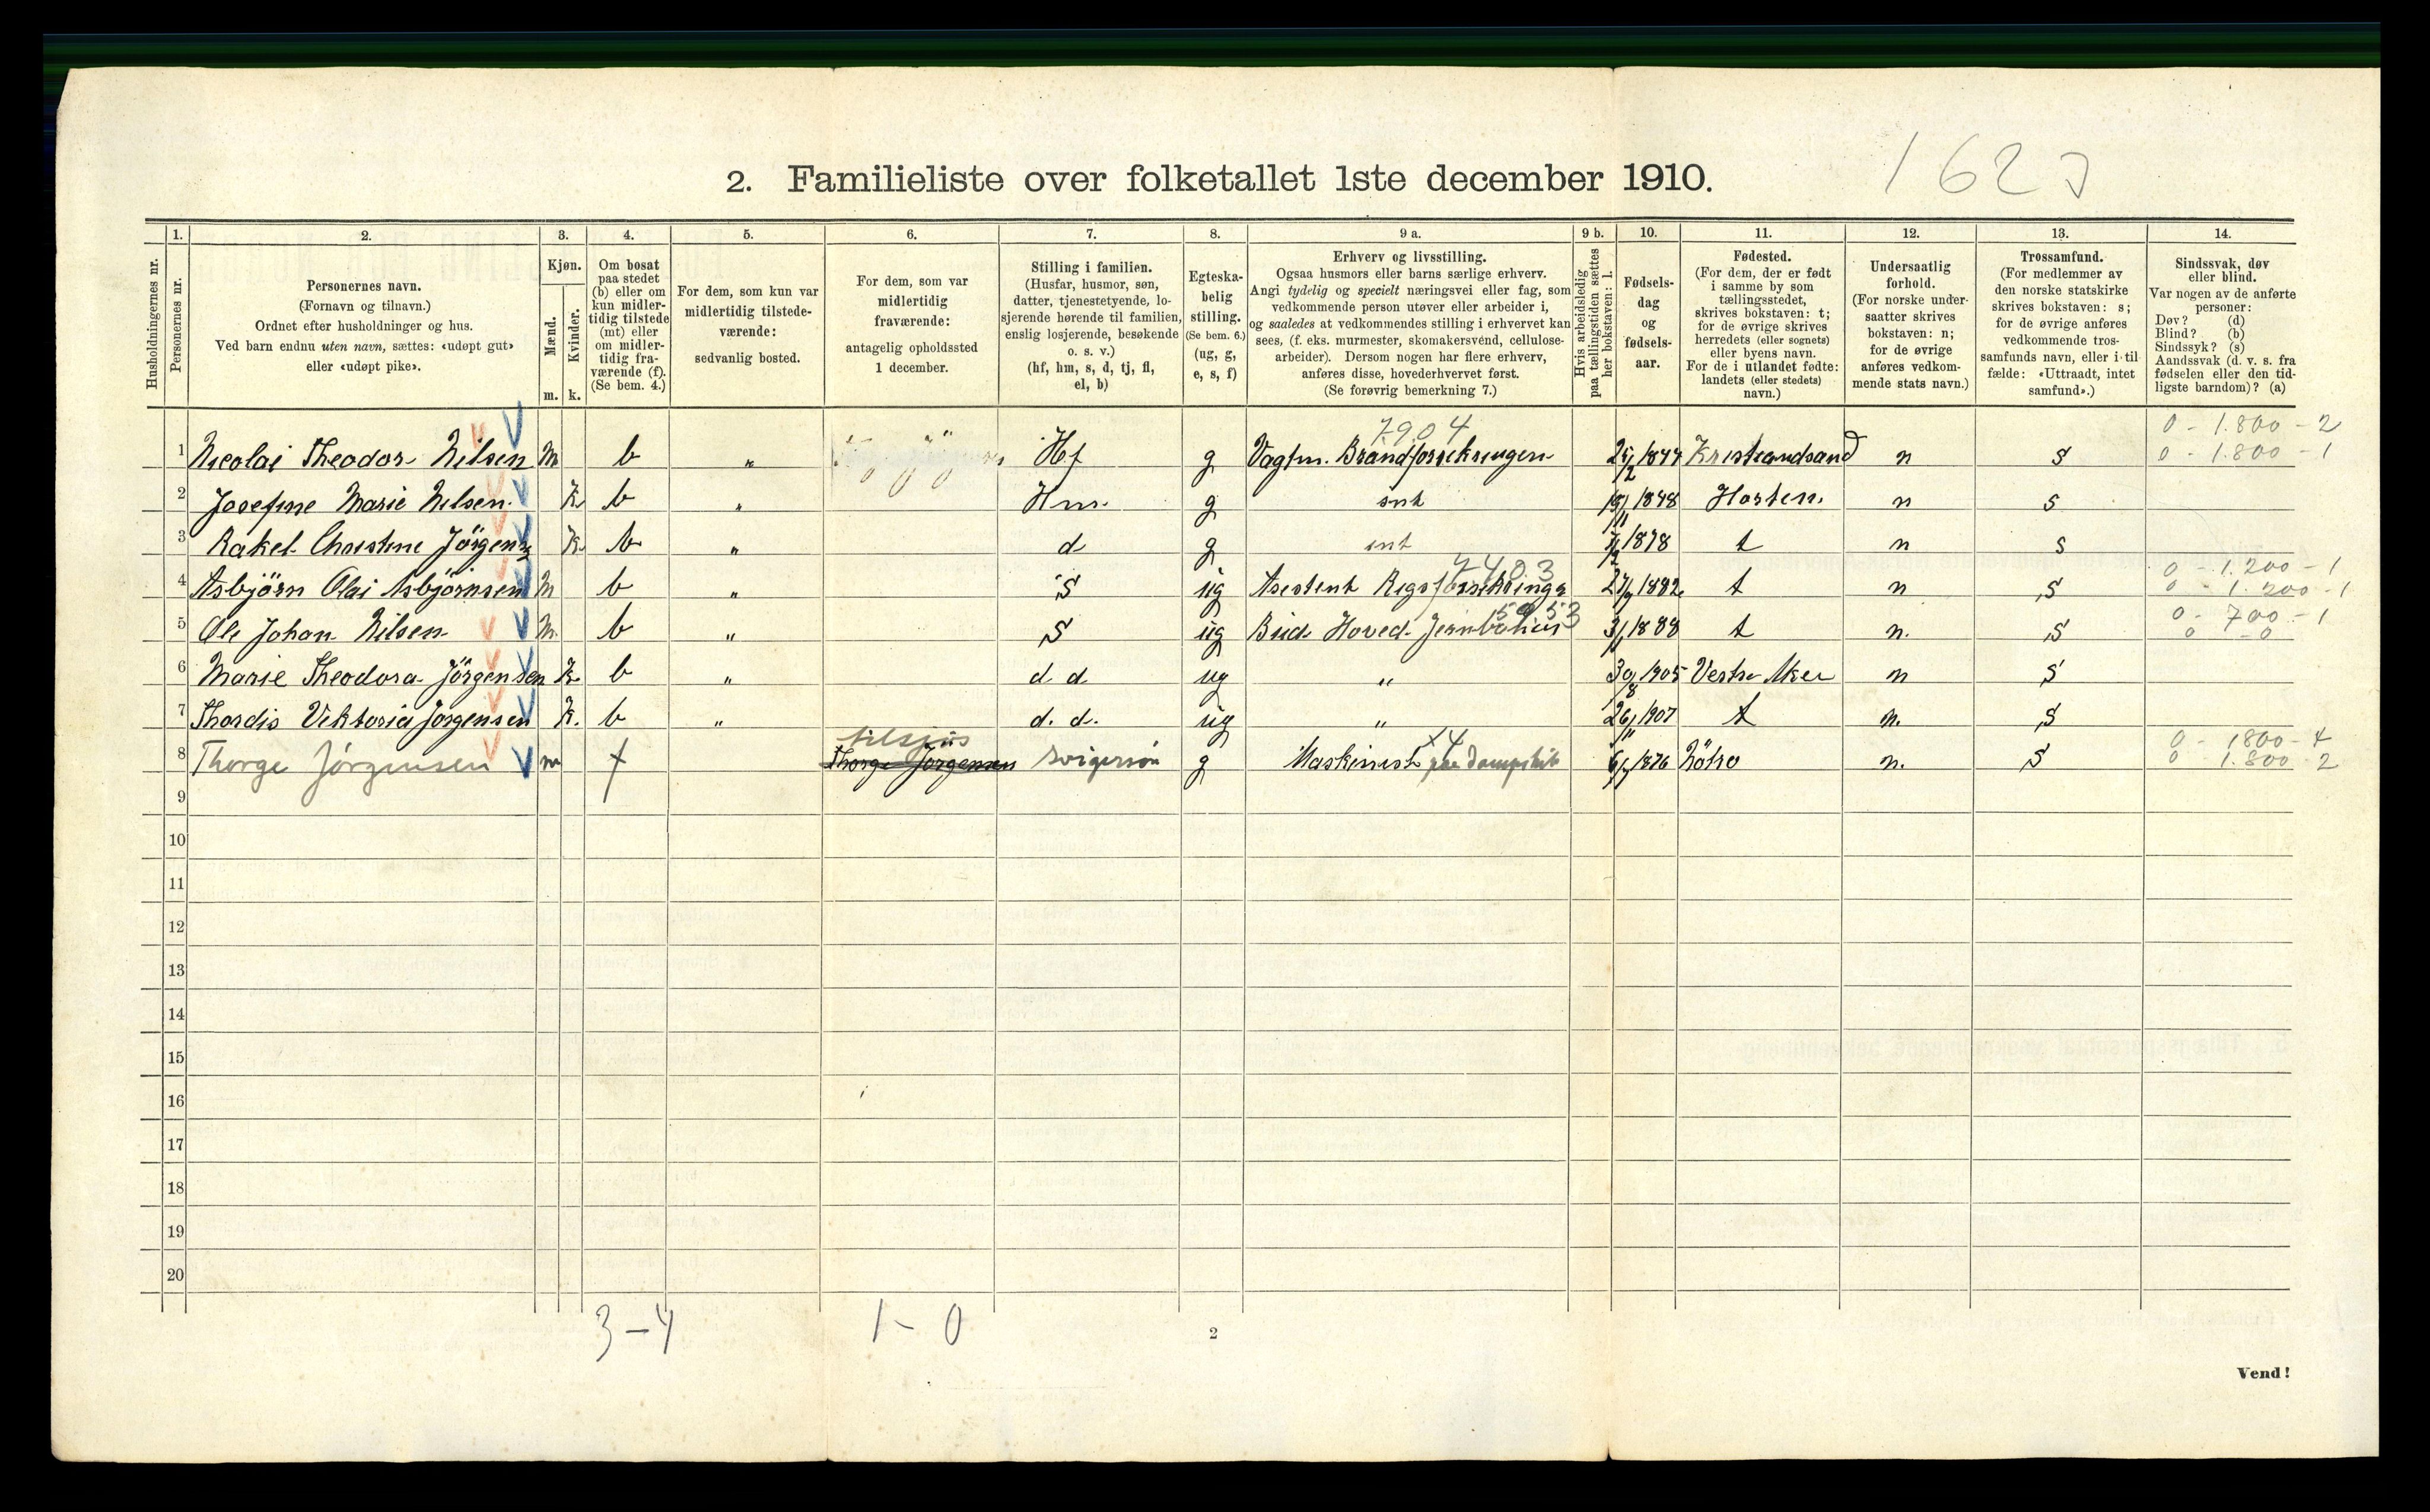 1623
2. Familieliste over folketallet 1ste december 1910.
Husholdningernes nr.
1. Personernes nr.
2. Personernes navn.
(Fornavn og tilnavn.)
Ordnet efter husholdninger og hus.
Ved barn endnu uten navn, sættes: «udøpt gut»
eller «udøpt pike».
3. Kjøn.
Mænd. m.
Kvinder. k.
4. Om bosat
paa stedet
(b) eller om
kun midler-
tidig tilstede
(mt) eller
om midler-
tidig fra-
værende (f).
(Se bem. 4.)
5. For dem, som kun var
midlertidig tilstede-
værende:
sedvanlig bosted.
6. For dem, som var
midlertidig
fraværende:
antagelig opholdssted
1 december.
7. Stilling i familien.
(Husfar, husmor, søn,
datter, tjenestetyende, lo-
sjerende hørende til familien,
enslig losjerende, besøkende
o. s. v.)
(hf, hm, s, d, tj, fl,
el, b)
8. Egteska-
belig
stilling.
(Se bem. 6.)
(ug, g,
e, s, f)
9 a. Erhverv og livsstilling.
Ogsaa husmors eller barns særlige erhverv.
Angi tydelig og specielt næringsvei eller fag, som
vedkommende person utøver eller arbeider i,
og saaledes at vedkommendes stilling i erhvervet kan
sees, (f. eks. murmester, skomakersvend, cellulose-
arbeider). Dersom nogen har flere erhverv,
anføres disse, hovederhvervet først.
(Se forøvrig bemerkning 7.)
9 b. Hvis arbeidsledig
paa tællingstiden sættes
her bokstaven: l.
10. Fødsels-
dag
og
fødsels-
aar.
11. Fødested.
(For dem, der er født
i samme by som
tællingsstedet,
skrives bokstaven: t;
for de øvrige skrives
herredets (eller sognets)
eller byens navn.
For de i utlandet fødte:
landets (eller stedets)
navn.)
12. Undersaatlig
forhold.
(For norske under-
saatter skrives
bokstaven: n;
for de øvrige
anføres vedkom-
mende stats navn.)
13. Trossamfund.
(For medlemmer av
den norske statskirke
skrives bokstaven: s;
for de øvrige anføres
vedkommende tros-
samfunds navn, eller i til-
fælde: «Uttraadt, intet
samfund».)
14. Sindssvak, døv
eller blind.
Var nogen av de anførte
personer:
Døv? (d)
Blind? (b)
Sindssyk? (s)
Aandssvak (d. v. s. fra
fødselen eller den tid-
ligste barndom)? (a)
7904 0 - 1.800 - 2
1 Nicolai Theodor Nilsen m b " Hf g Vagtm. Brandforsikringen 1844 Kristiandsand n S 0 - 1.800 - 1
2 Josefine Marie Nilsen k b " Hm. g int 1848 Horten. n s
3 Rakel Christine Jörgens k b " d g int 1878 t n s
7403 0 - 1.200 - 1
4 Asbjörn Olai Asbjörnsen m b " S ug Asestent Rigsforsikringe 1882 t n S 0 - 1.200 - 1
5953 0 - 700 - 1
5 Ole Johan Nilsen m b " S ug Bud Hoved 1888 t n. S 0 - 0
6 Marie Theodora Jörgensen k b " d d ug " 30/8 1905 Vestre Aker n S
7 Thordis Viktoria Jorgensen k. b " d. d. ug " 26/11 1907 t n. S
tilsjøs x4 0 - 1800 - 4
8 Thorge Jörgensen m f Thorge Jörgensen svigersön g Maskinist paa Dampskib 1876 n. S 0 - 1.800 - 2
9
10
11
12
13
14
15
16
17
18
19
20
3 - 4 1 - 0
2
Vend!